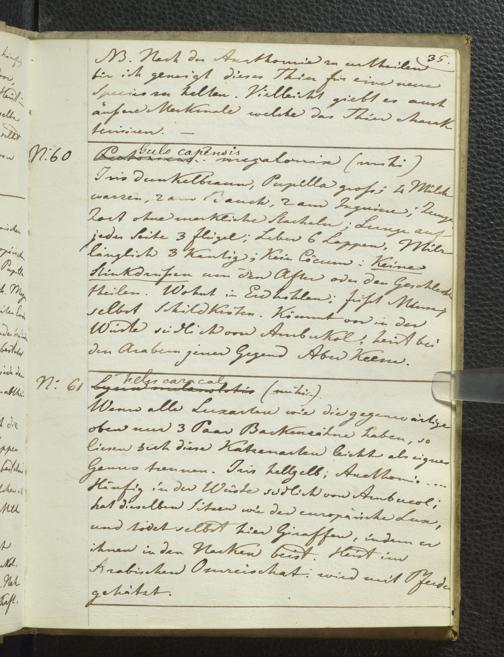 35.
NB. Nach der Anathomie zu urtheilen
bin ich geneigt dieses Thier für eine neue
Species zu halten. Vielleicht giebt es auch
äußere Merkmale welche das Thier charak
terisiren. —
Gulo capensis
N: 60 megalomix (mihi)
Iris dunkelbraun, Pupilla groß; 4 Milch
warzen, 2 am Bauch, 2 am Inguine; Zunge
zart ohne merkliche Stacheln; Lunge auf
jeder Seite 3 flügel; Leber 6 Lappen, Milz
länglich 3 kantig; Kein Cöcum; Keine
Stinkdrüsen um den After oder den Geschlechts
theilen. Wohnt in Erdhöhlen; frißt Mäuse,
selbst Schildkröten. Kömmt vor in der
Wüste südlich von Ambukol; heist bei
den Arabern jener Gegend Aber Keem.
Felis caracal
N: 61 Lynx (mihi)
Wenn alle Luxarten wie die gegenwärtige
oben nur 3 Paar Backenzähne haben, so
liesen sich diese Katzenarten leicht als eignes
Genus trennen. Iris hellgelb; Anathomie ....
Häufig in der Wüste südlich von Ambucol;
hat dieselben Sitten wie der europäische Lux,
und tödet selbst hier Giraffen, indem er
ihnen in den Nacken beist. Heist im
Arabischen Omreischat: wird mit Pferde
gehätzt.